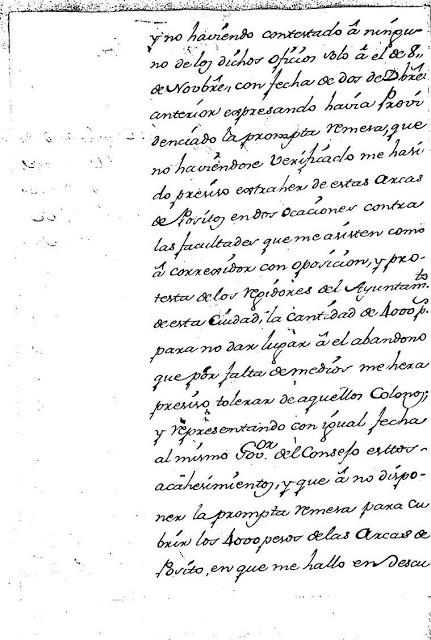 y no haviendo contestado â ningu-
no de los dichos oficios solo â el de 8,,
de Novbre, con fecha de dos de Dbre
anterior expresando havia Provi
denciado la prompta remesa, que
no haviendose verificado me hasi
do presiso extraher de estas Arcas
de Posito, en dos ocaciones contra
las facultades que me asisten como
â corregidor con oposicion, y pro-
testa de los regidores del Ayuntam.to
de esta Ciudad, la cantidad de 4000 p.s
para no dar lugar â el abandono
que por falta de medios me hera
presiso tolerar de aquellos Colonos;
y representando con igual fecha
al mismo Gov.or del Consejo esttos-
acahesimientos, y que â no dispo-
ner la prompta remesa para cu
brir los 4000 pesos de las Arcas de
Posito, en que me hallo en Descu